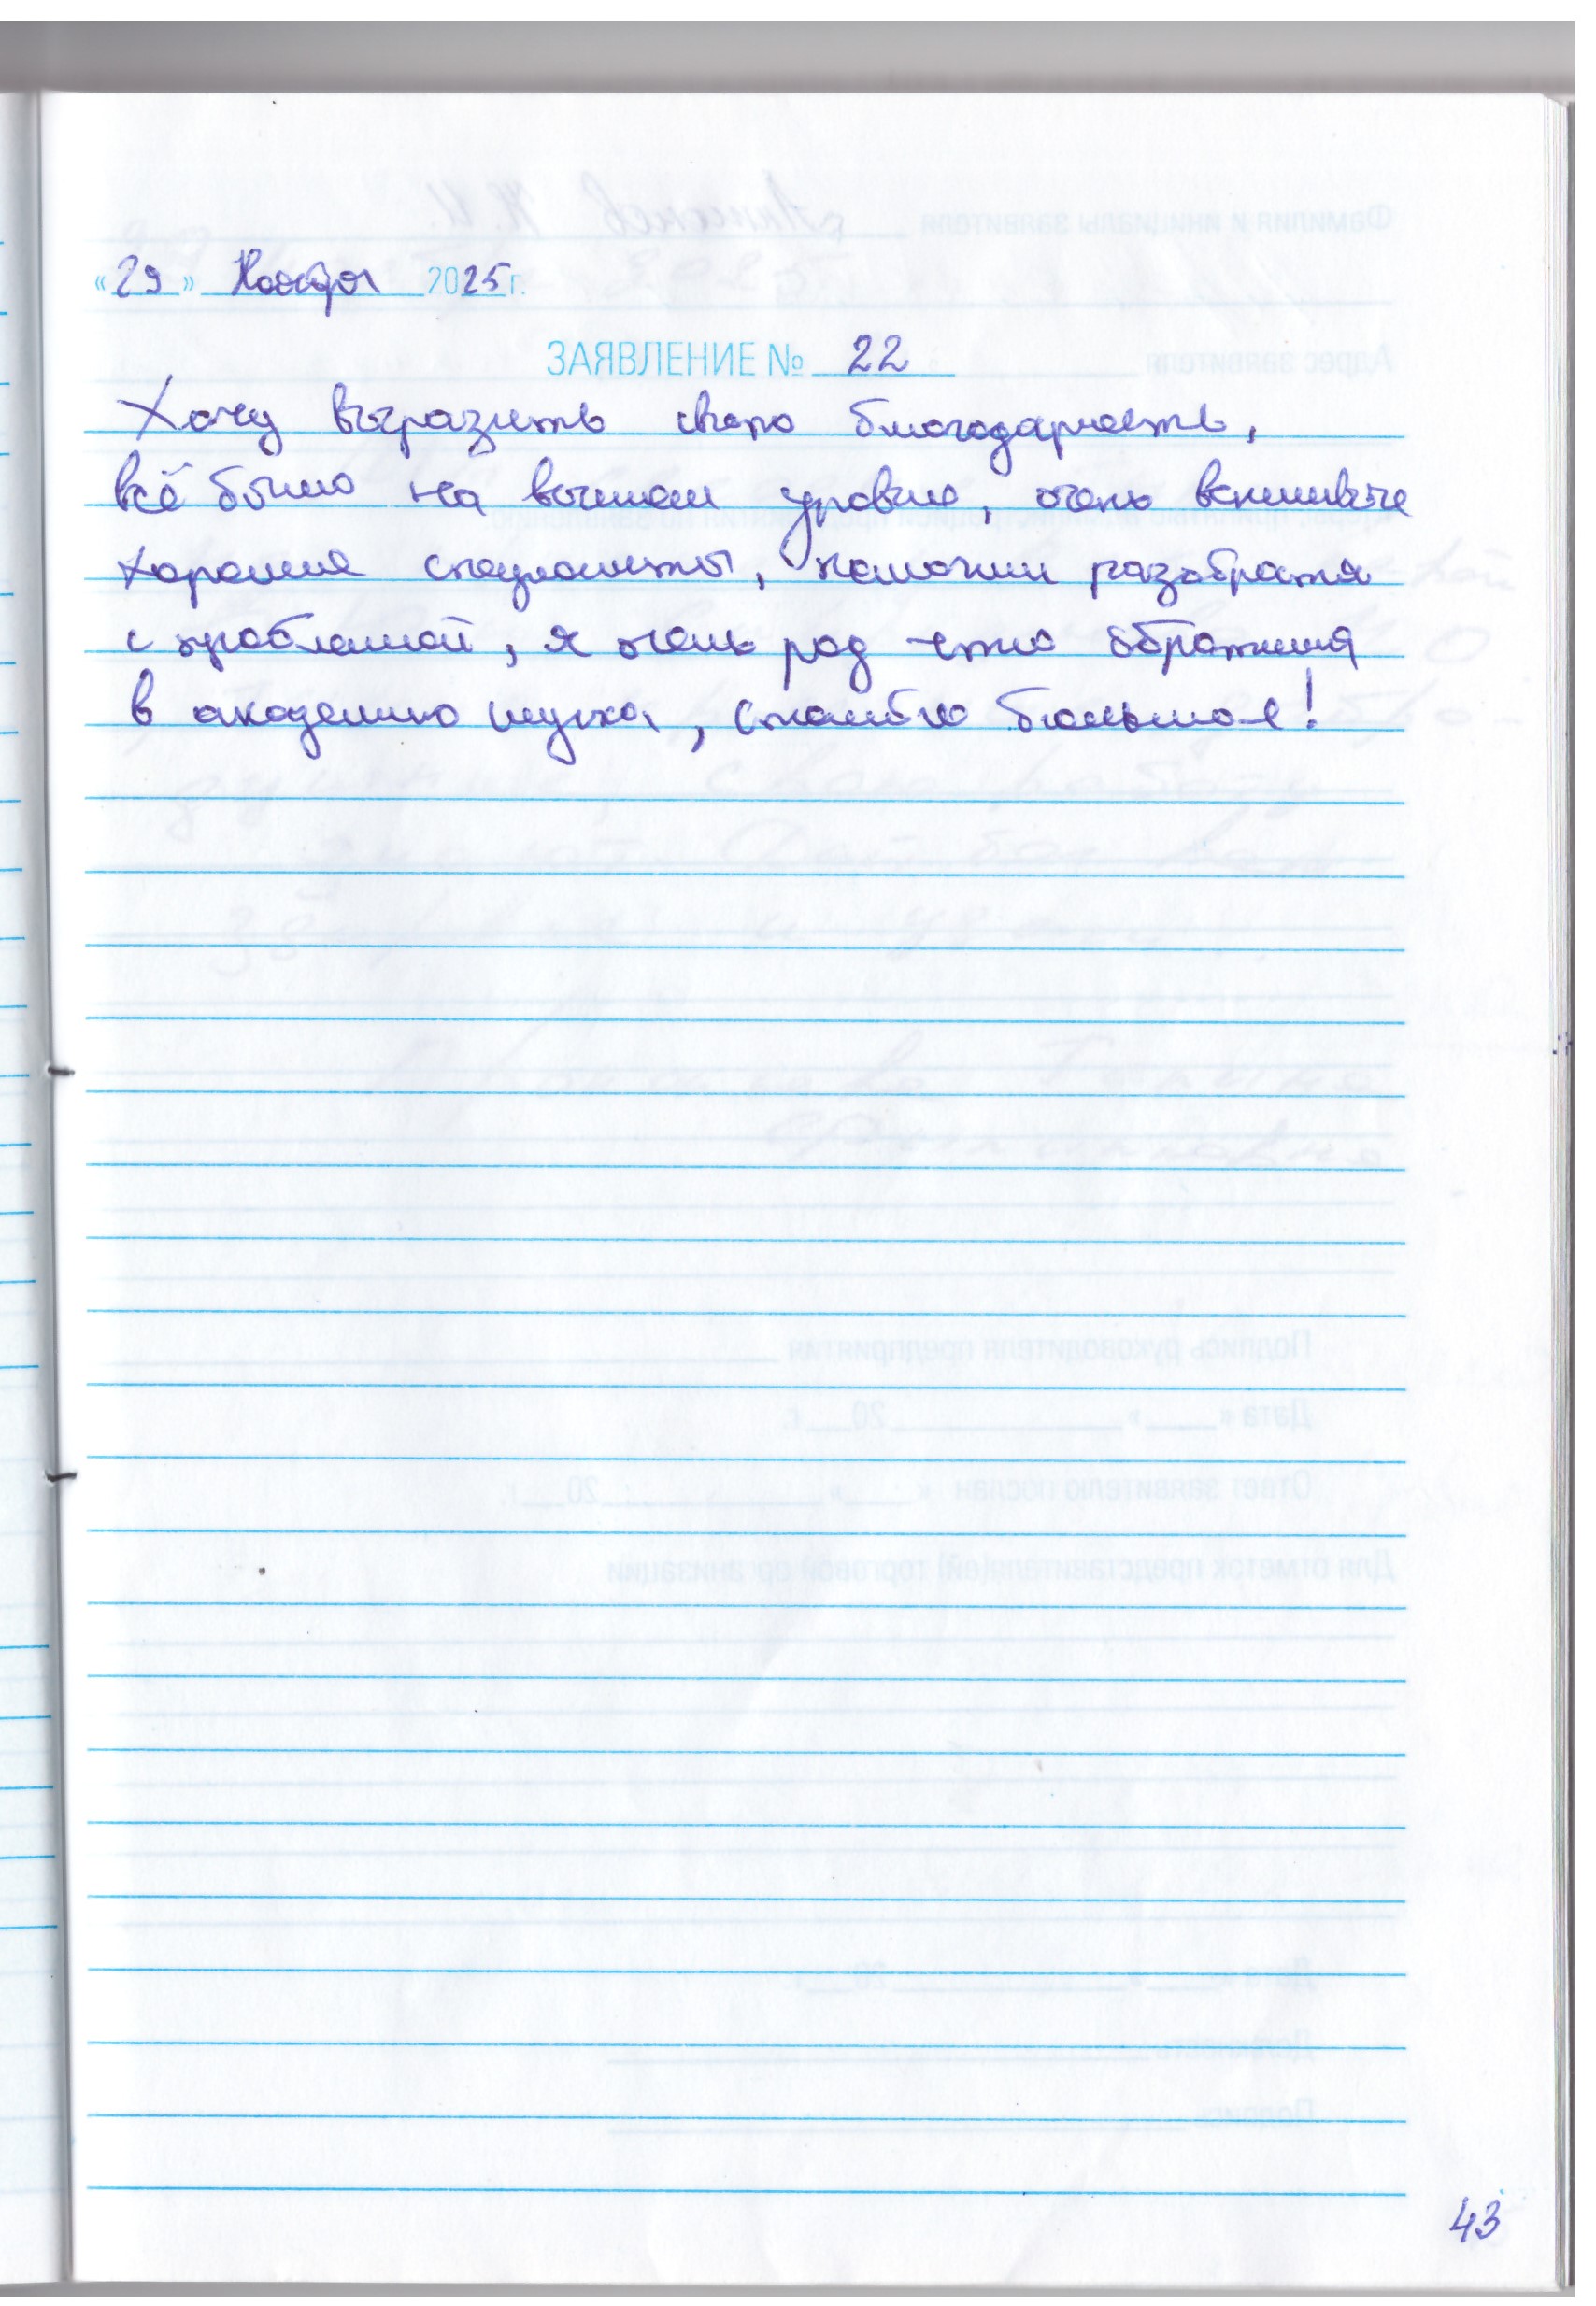 «29» Ноября 2025 г.
ЗАЯВЛЕНИЕ № 22
Хочу выразить свою благодарность,
всё было на высшем уровне, очень вежливые
хорошие специалисты, помогли разобраться
с проблемой, я очень рад что обратился
в академию слуха, спасибо большое!
43